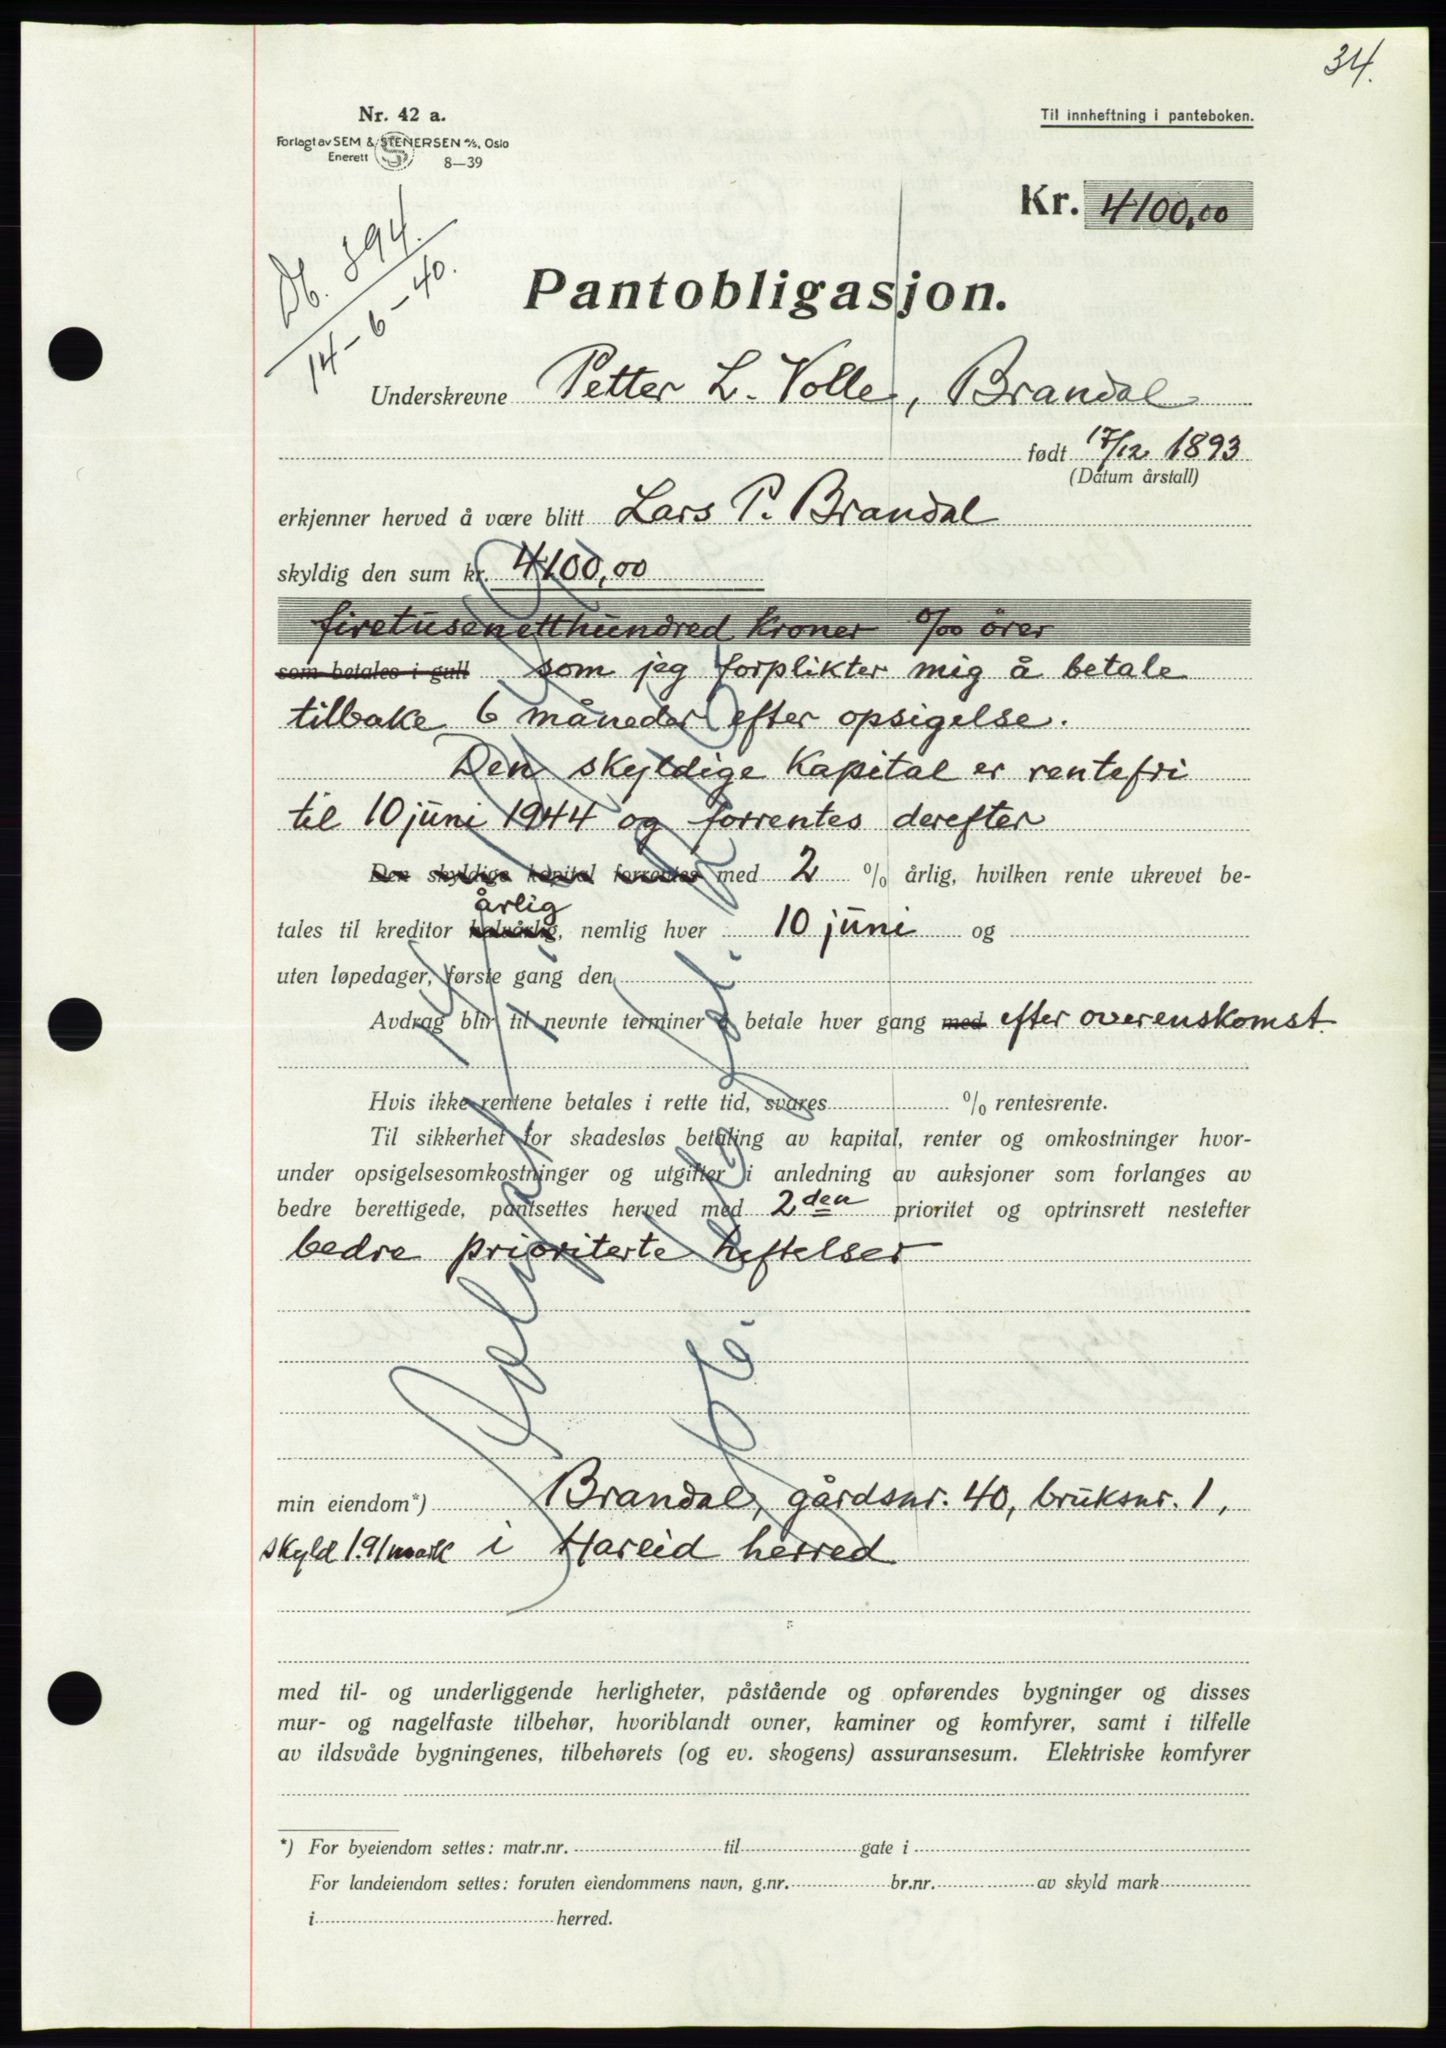 34.
Nr. 42 a.
Til innheftning i panteboken.
Forlagt av SEM & STENERSEN A/S, Oslo
Enerett 8—39
Kr. 4100,00
Db. 894.
14-6-40.
Pantobligasjon.
Underskrevne Petter L. Volle, Brandal
født 17/12 1893
(Datum årstall)
erkjenner herved å være blitt Lars P. Brandal
skyldig den sum kr. 4100,00
firetusenetthundred Kroner 0/00 örer
som betales i gull som jeg forplikter mig å betale
tilbake 6 måneder efter opsigelse.
Den skyldige Kapital er rentefri
til 10 juni 1944 og forrentes derefter
Den skyldige kapital forrentes med 2 % årlig, hvilken rente ukrevet be-
årlig
tales til kreditor halvårlig, nemlig hver 10 juni og
uten løpedager, første gang den
Avdrag blir til nevnte terminer å betale hver gang med efter overenskomst.
Hvis ikke rentene betales i rette tid, svares % rentesrente.
Til sikkerhet for skadesløs betaling av kapital, renter og omkostninger hvor-
under opsigelsesomkostninger og utgifter i anledning av auksjoner som forlanges av
bedre berettigede, pantsettes herved med 2den prioritet og optrinsrett nestefter
bedre prioriterte heftelser
min eiendom*) Brandal, gårdsnr. 40, bruksnr. 1,
skyld 1.91 mark i Hareid herred
med til- og underliggende herligheter, påstående og opførendes bygninger og disses
mur- og nagelfaste tilbehør, hvoriblandt ovner, kaminer og komfyrer, samt i tilfelle
av ildsvåde bygningenes, tilbehørets (og ev. skogens) assuransesum. Elektriske komfyrer
*) For byeiendom settes: matr.nr. til gate i
For landeiendom settes: foruten eiendommens navn, g.nr. br.nr. av skyld mark
i herred.